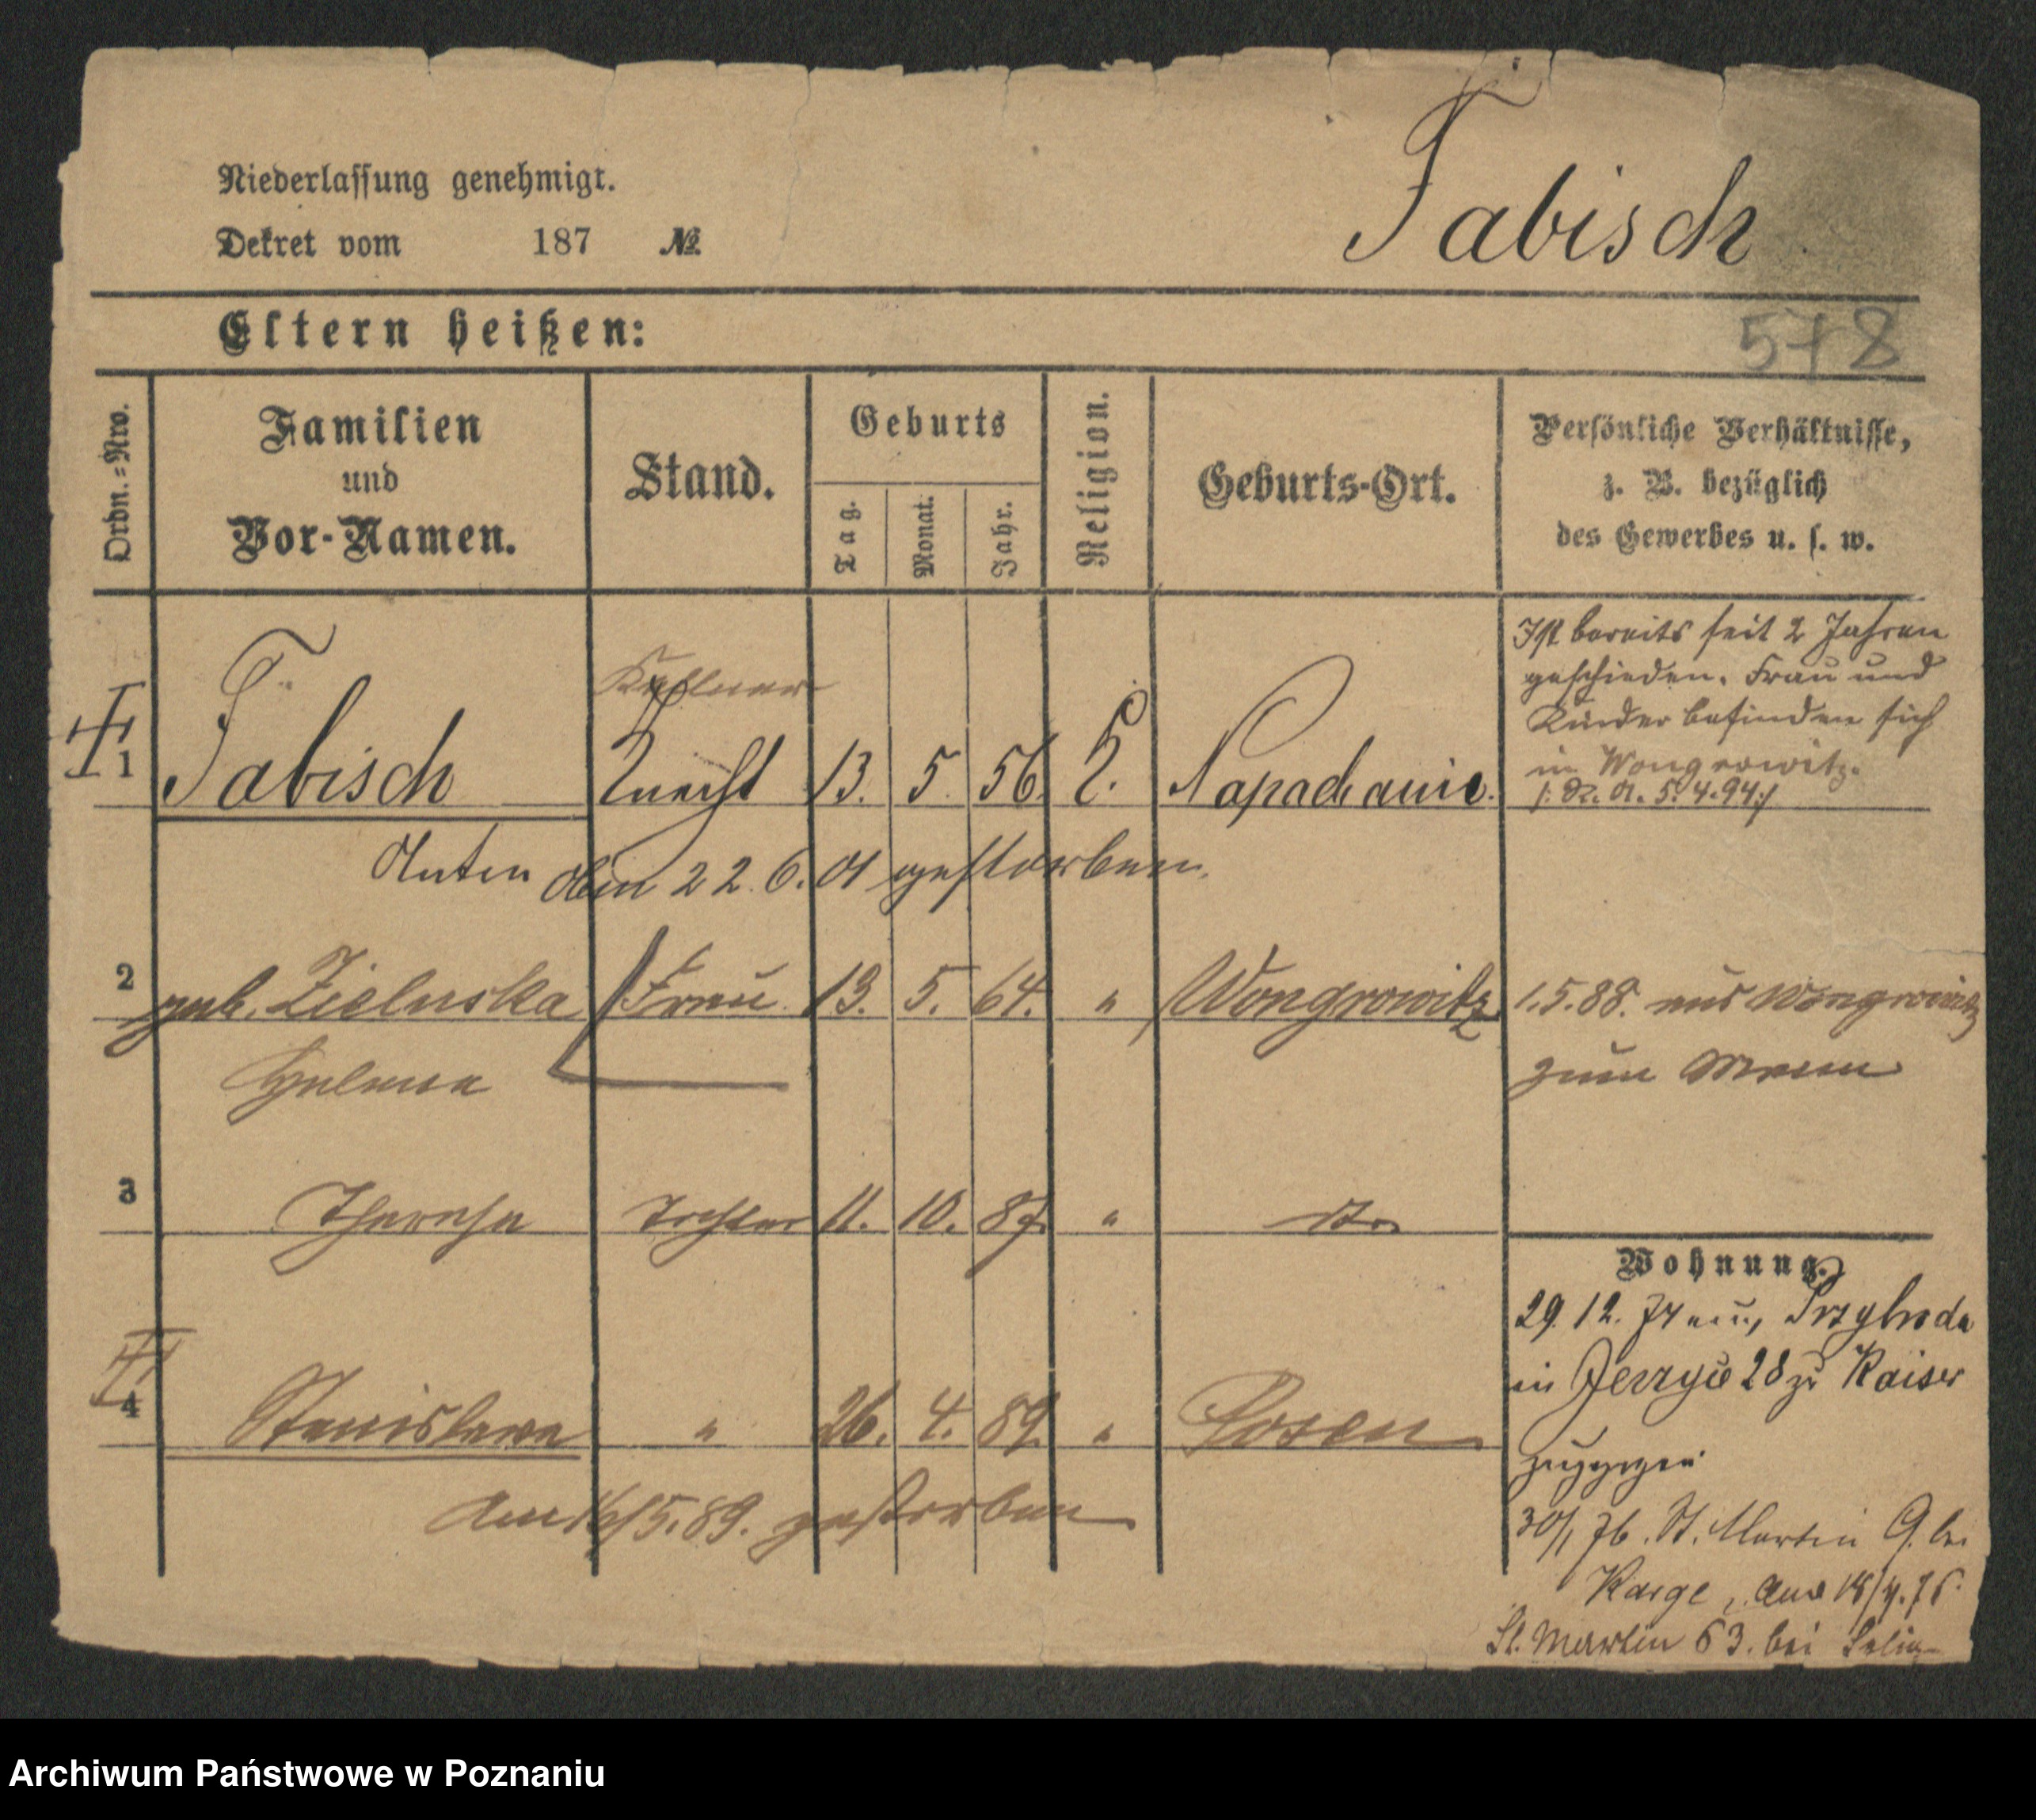 Niederlassung genehmigt.
Tabisch
Dekret vom 187 №
Eltern heißen:
578
Ordn.=Nro.
Familien
und
Vor-Namen.
Stand.
Geburts
Tag.
Monat.
Jahr.
Religion.
Geburts-Ort.
Persönliche Verhältnisse,
z. B. bezüglich
des Gewerbes u. s. w.
Ist bereits seit 2 Jahren
geschieden. Frau und
Kinder befinden sich
in Wongrowitz.
5.4.94
Kellner
1 Tabisch Knecht 13. 5. 56. k.
Anton den 22.6.01 gestorben.
2 geb. Zielinska Frau 13. 5. 64. " Wongrowitz 1.5.88. aus Wongrowitz
Helena zum Mann
3 Theresa Tochter 11. 10. 87. " do
4 Stanislawa " 26. 4. 89. " Posen
Am 16/5.89. gestorben
Wohnung.
29. 12. 74 Przybroda
in Jerzyce 28 zu Kaiser
zugezogen
30/1 76. St. Martin 9. bei
Karge, /4.76.
St. Martin 63. bei
Archiwum Państwowe w Poznaniu